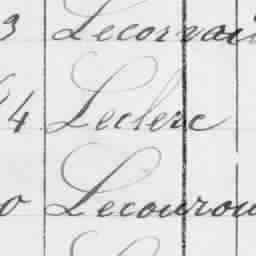 3 Lecorvai
4 Leclerc
0 Lecourou